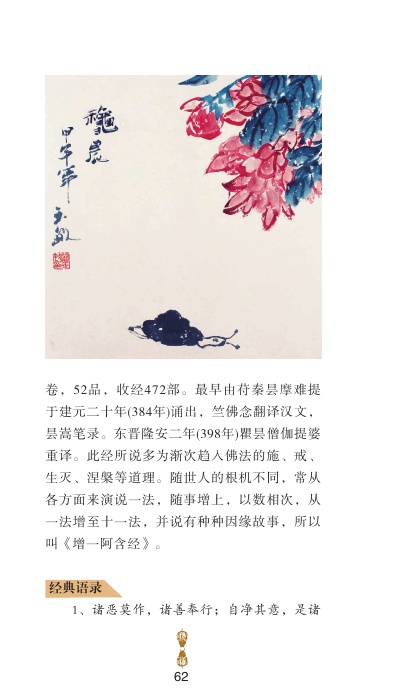 晨
甲午年
卷，52品，收经472部。最早由苻秦昙摩难提
于建元二十年(384年)诵出，竺佛念翻译汉文，
昙嵩笔录。东晋隆安二年(398年)瞿昙僧伽提婆
重译。此经所说多为渐次趋入佛法的施、戒、
生灭、涅槃等道理。随世人的根机不同，常从
各方面来演说一法，随事增上，以数相次，从
一法增至十一法，并说有种种因缘故事，所以
叫《增一阿含经》。
经典语录
1、诸恶莫作，诸善奉行；自净其意，是诸
62